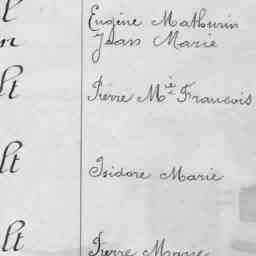 Eugène Mathurin
Jean Marie
lt
Pierre Mie Francois
lt
Isidore Marie
lt
Pierre Marie